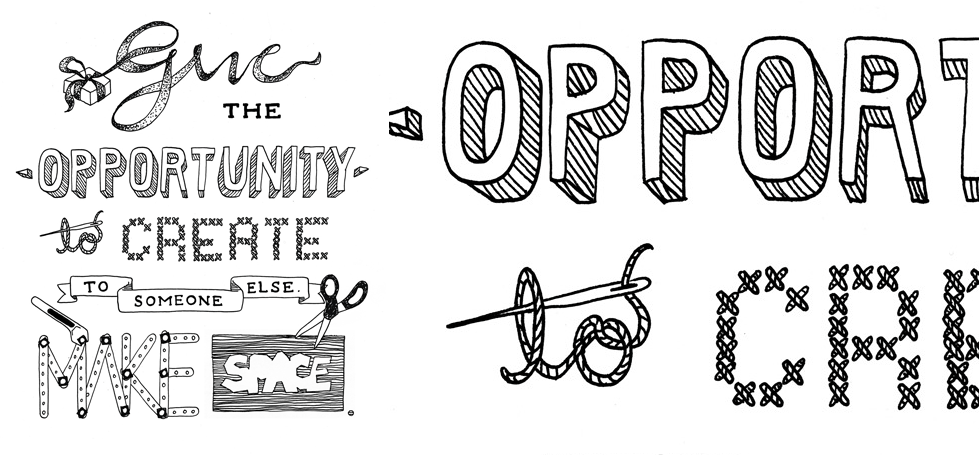 Give
THE
OPPORTUNITY
to CREATE
TO SOMEONE ELSE.
MAKE SPACE
OPPORT
to CR